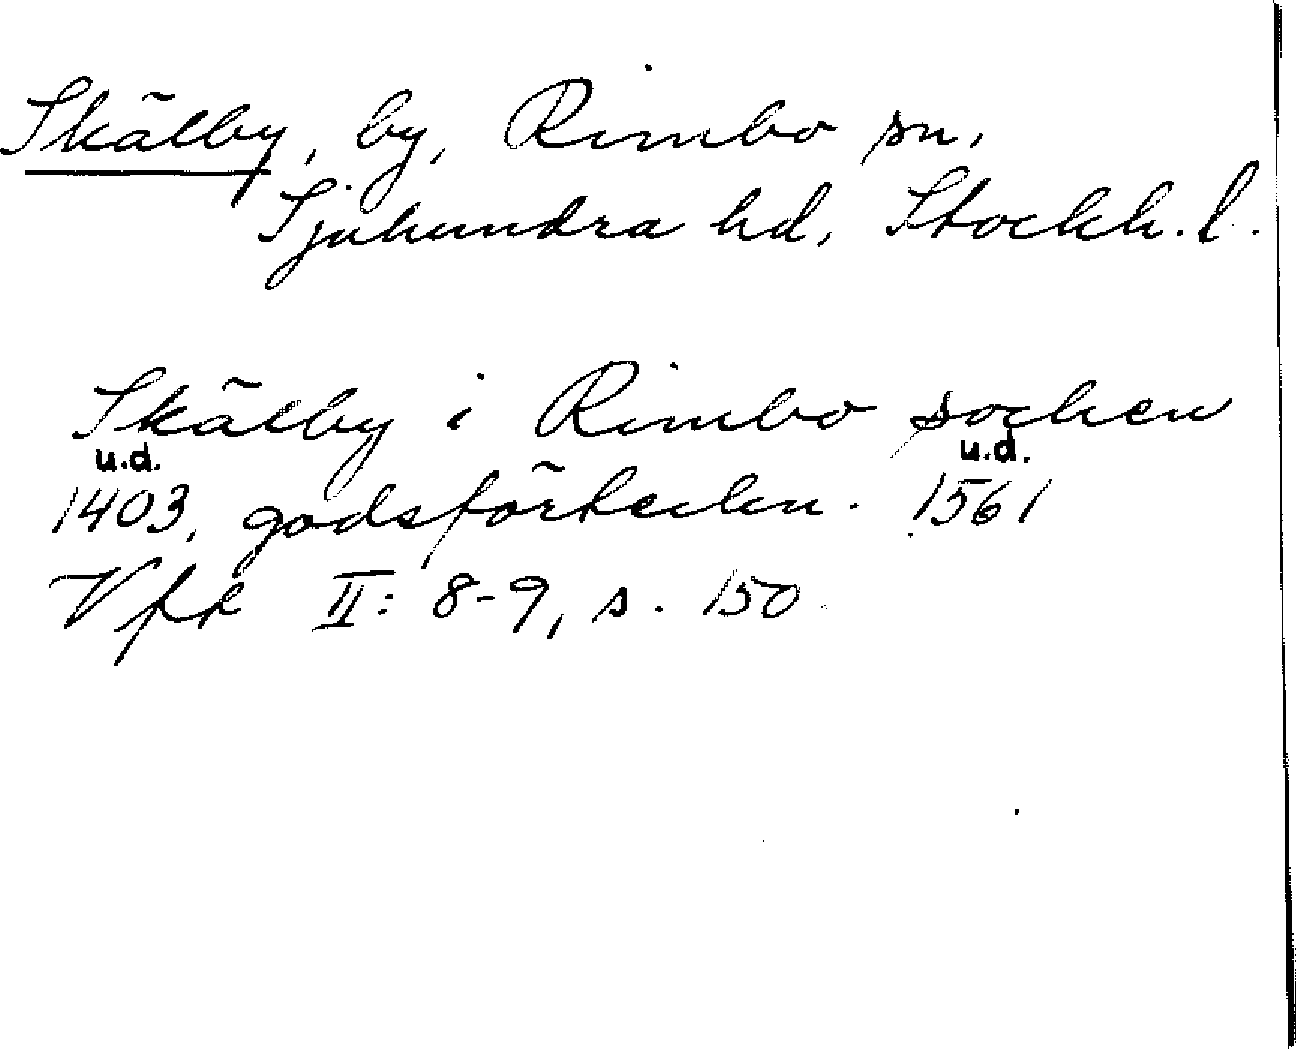 Skälby, by, Rimbo sn,
Sjuhundra hd, Stockh. l.
Skälby i Rimbo socken
u.d. u.d.
1403, godsförteckn. 1561
Vfr II: 8-9, s. 150